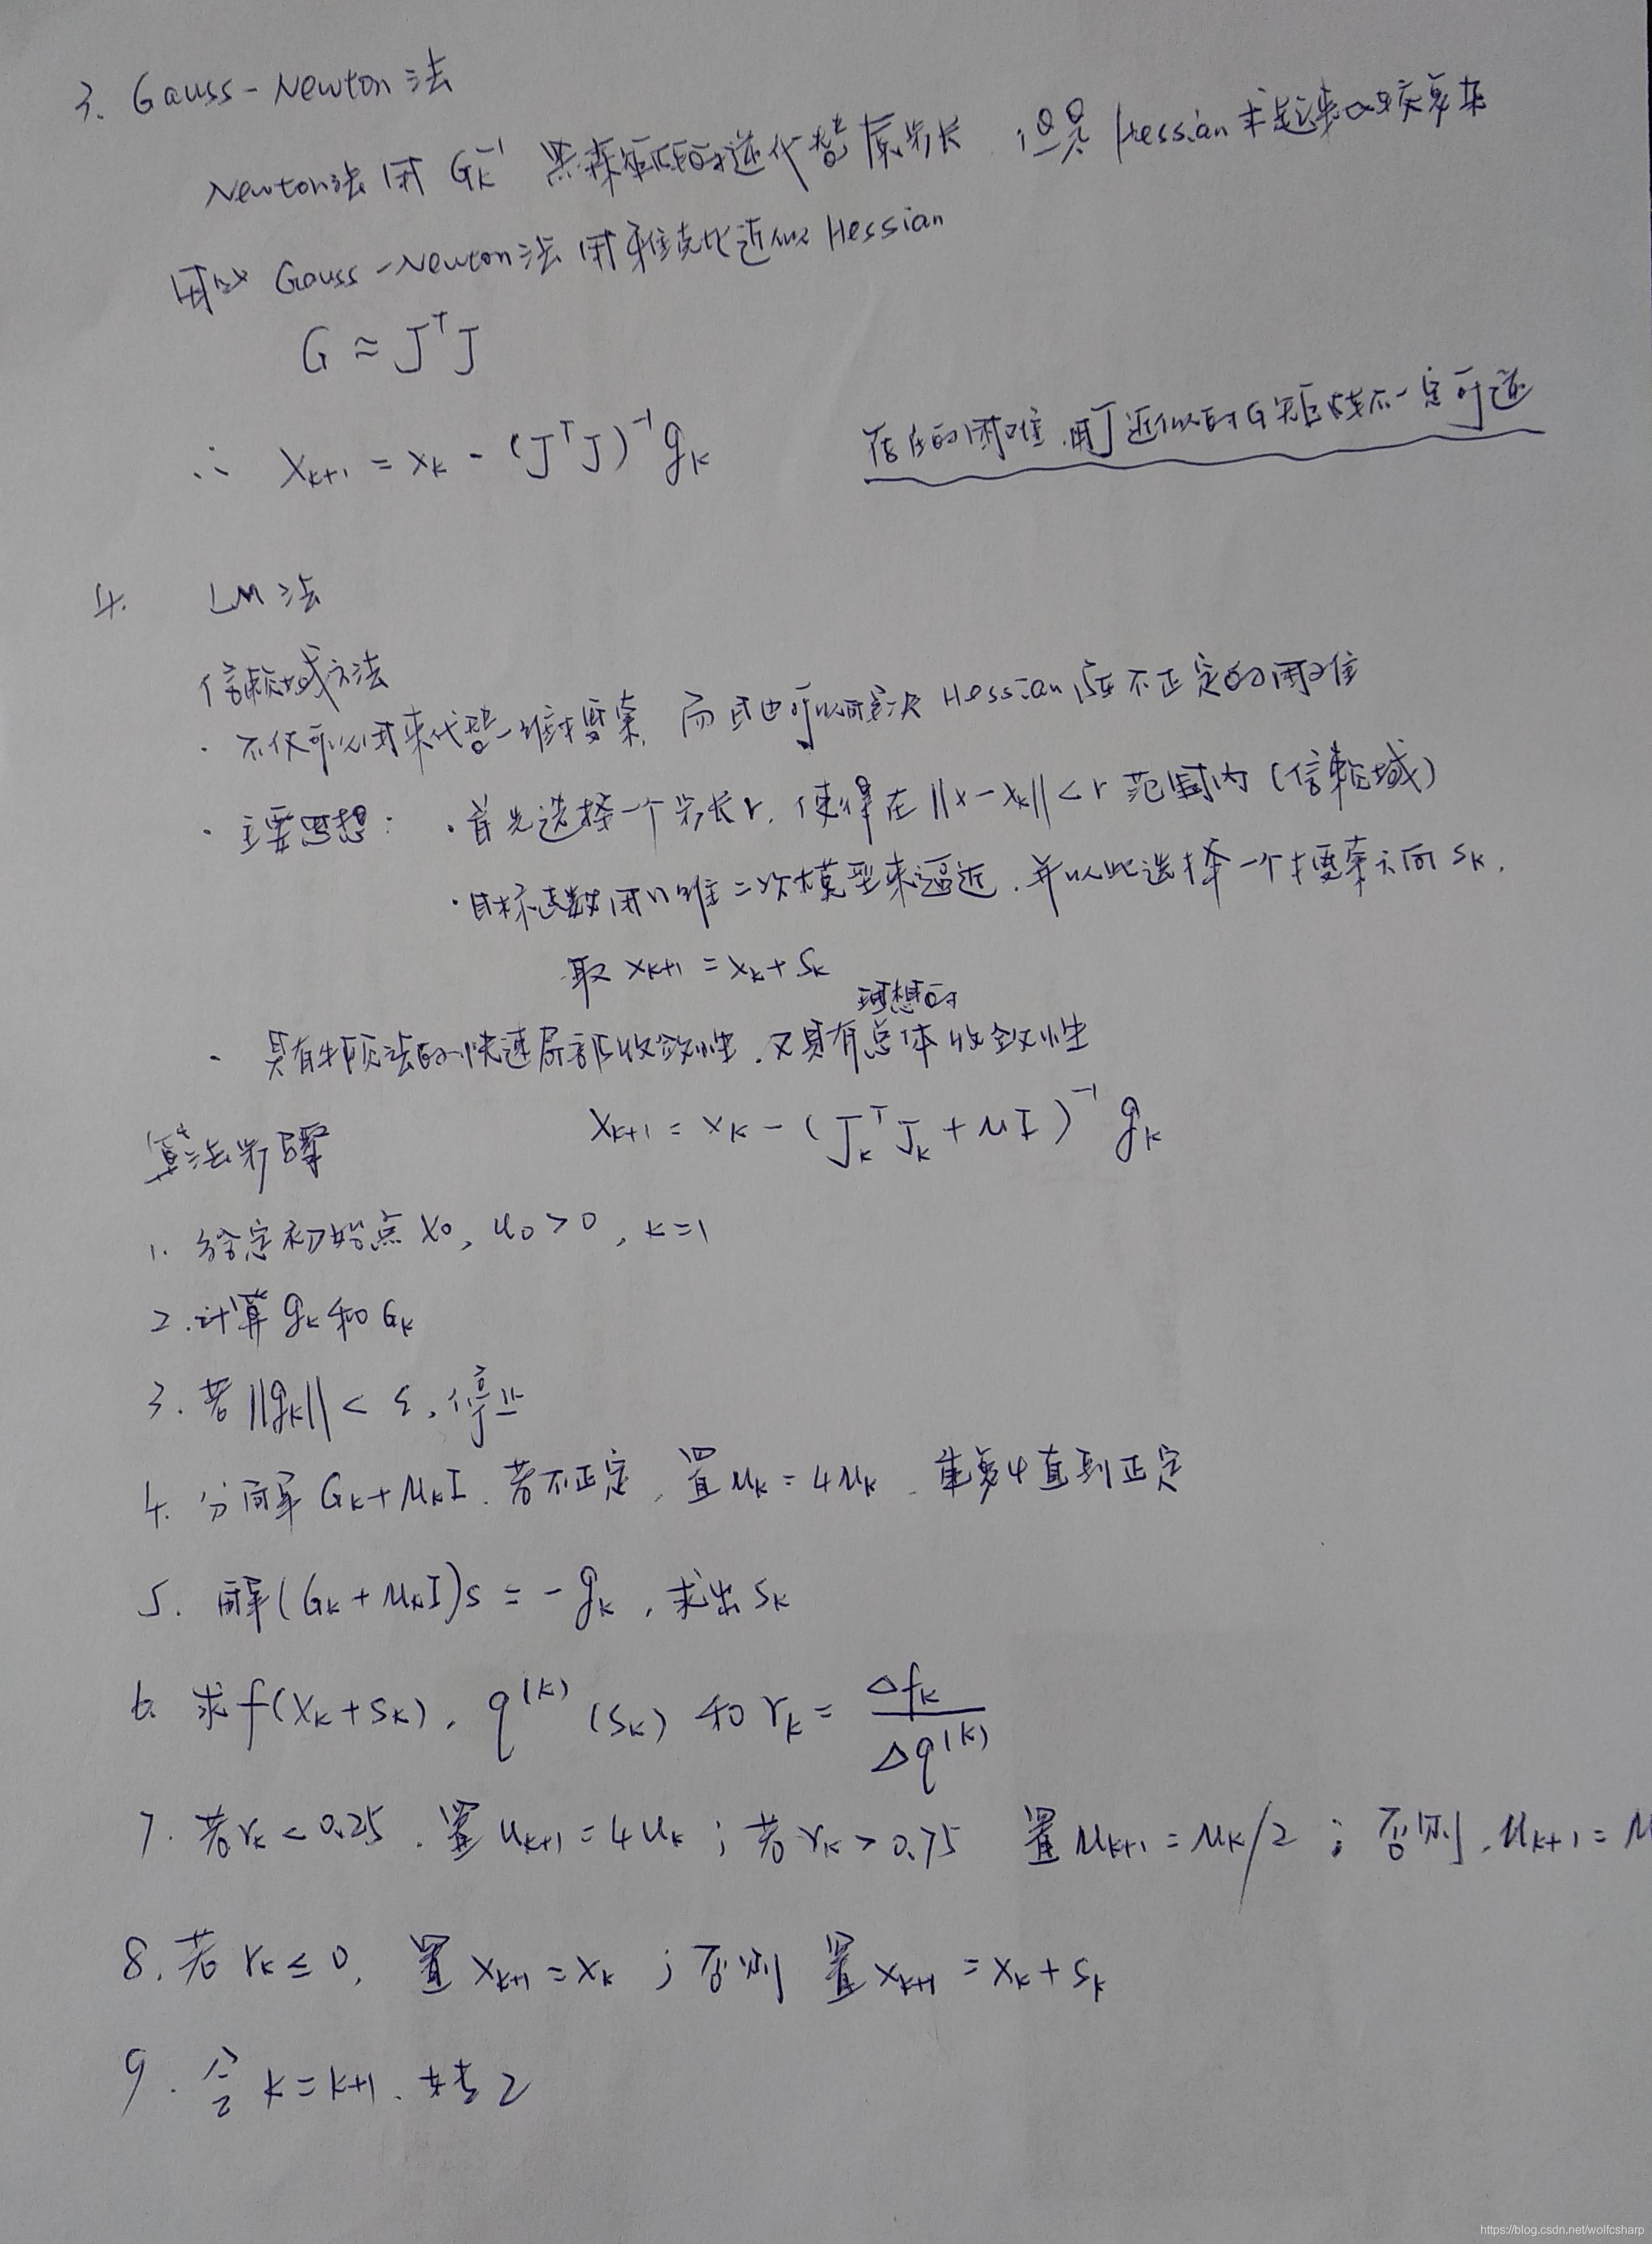 3. Gauss-Newton法
Newton法用 G_k^{-1} 黑森矩阵的逆代替原步长，但是 Hessian 求起来比较复杂
所以 Gauss-Newton法用雅克比近似 Hessian
G ≈ J^T J
∴ x_{k+1} = x_k - (J^T J)^{-1} g_k
存在的困难，用J近似的G矩阵不一定可逆
4. LM法
信赖域方法
· 不仅可以用来代替一维搜索，而且也可以解决 Hessian 阵不正定的困难
· 主要思想： · 首先选择一个步长r，使得在 ||x-x_k|| < r 范围内（信赖域）
· 目标函数用n维二次模型来逼近，并以此选择一个搜索方向 s_k.
取 x_{k+1} = x_k + s_k
理想的
· 具有牛顿法的快速局部收敛性，又具有总体收敛性
x_{k+1} = x_k - (J_k^T J_k + μI)^{-1} g_k
算法步骤
1. 给定初始点 x_0, u_0 > 0, k=1
2. 计算 g_k 和 G_k
3. 若 ||g_k|| < ε, 停止
4. 分解 G_k + μ_k I, 若不正定，置 μ_k = 4μ_k, 重复4直到正定
5. 解 (G_k + μ_k I)s = -g_k, 求出 s_k
6. 求 f(x_k + s_k), q^{(k)}(s_k) 和 r_k = Δf_k / Δq^{(k)}
7. 若 r_k < 0.25, 置 u_{k+1} = 4u_k; 若 r_k > 0.75 置 μ_{k+1} = μ_k/2; 否则, μ_{k+1} = μ
8. 若 r_k ≤ 0, 置 x_{k+1} = x_k; 否则 置 x_{k+1} = x_k + s_k
9. 令 k=k+1, 转2
https://blog.csdn.net/wolfcsharp